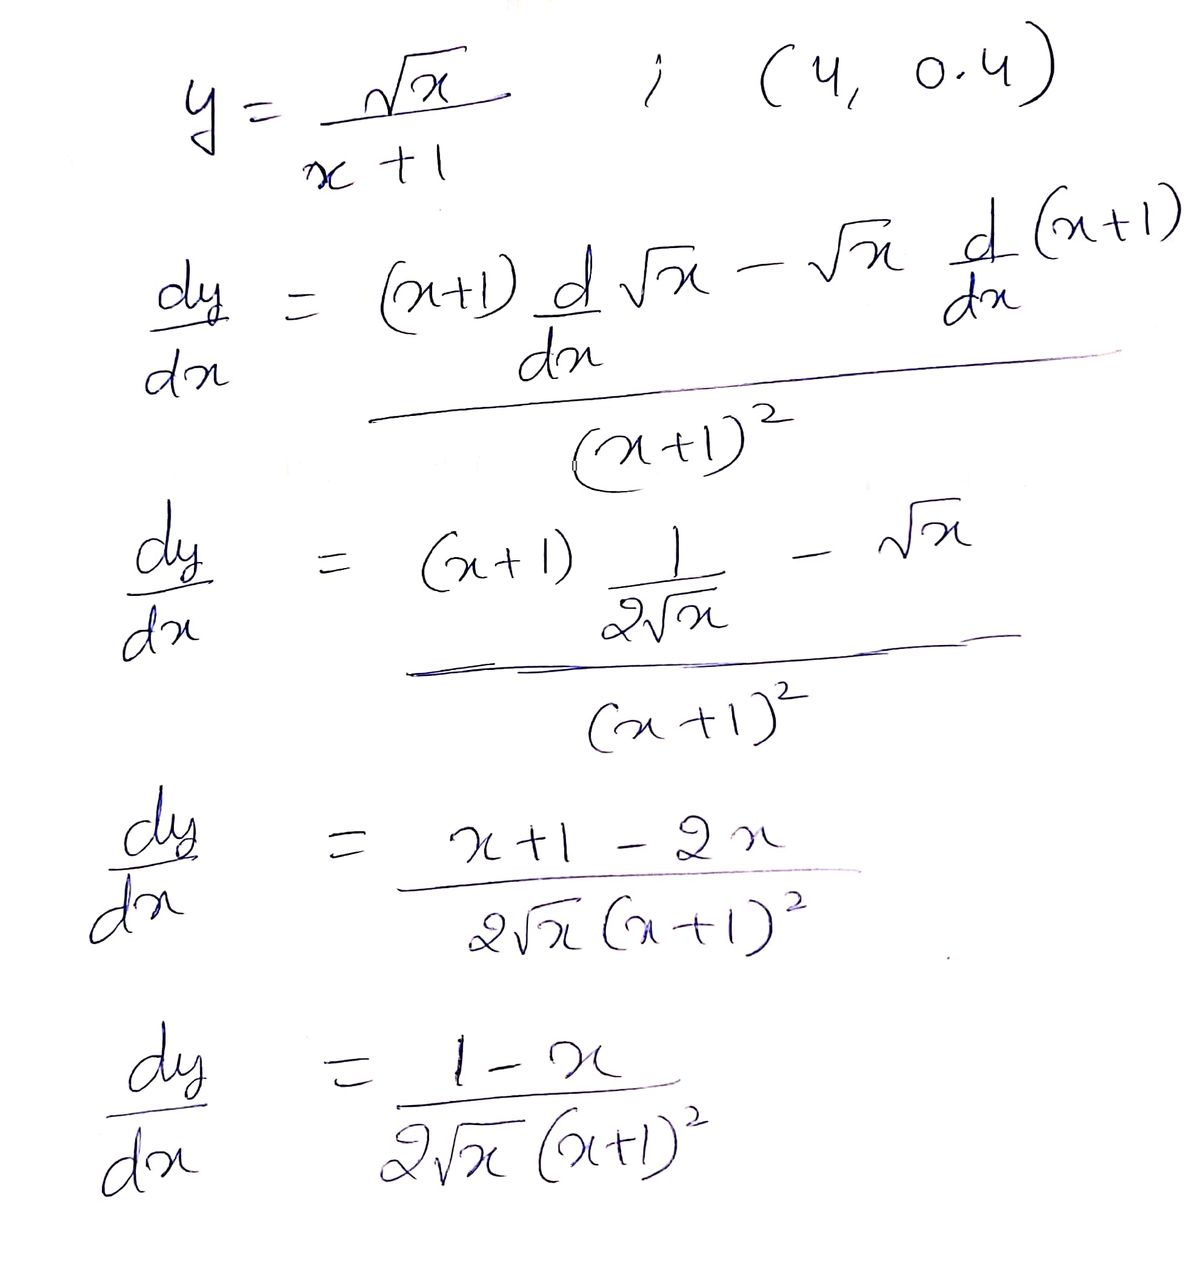 y = √x / (x + 1) ; (4, 0.4)
dy/dx = ((x+1) d/dx √x − √x d/dx (x+1)) / (x+1)²
dy/dx = ((x+1) 1/(2√x) − √x) / (x+1)²
dy/dx = (x+1 − 2x) / (2√x (x+1)²)
dy/dx = (1 − x) / (2√x (x+1)²)